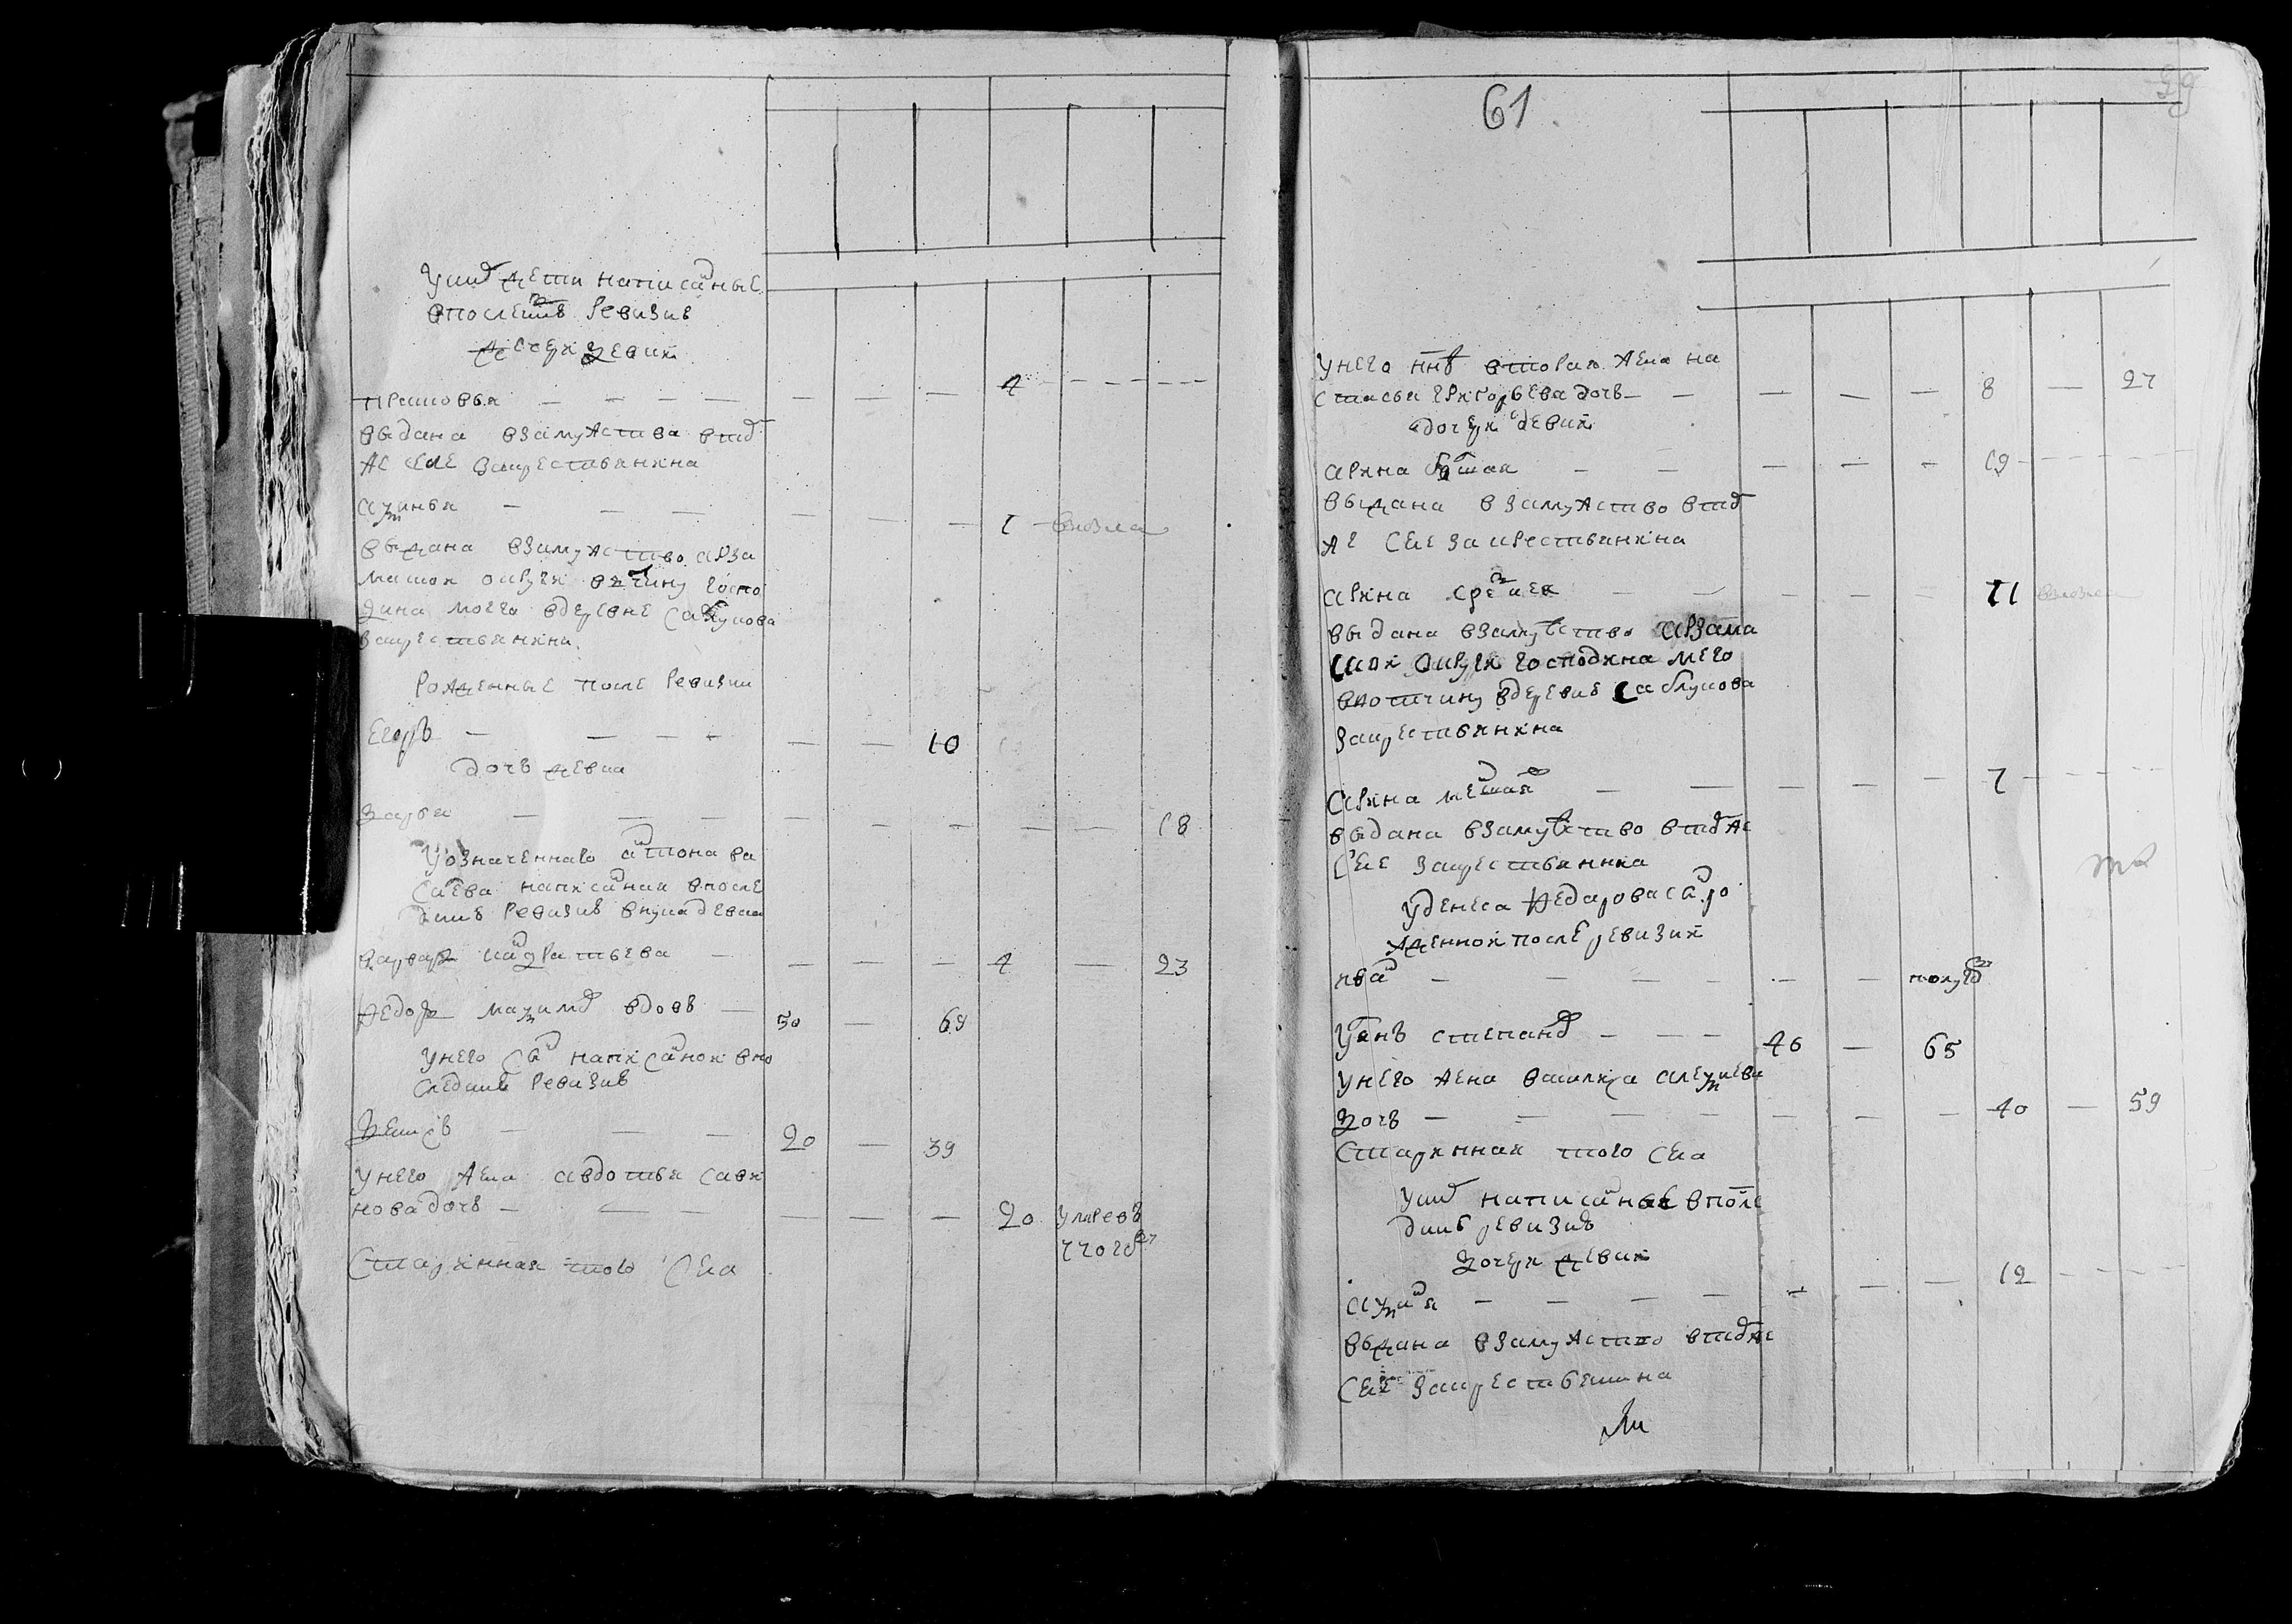 У них дети написанные
в последней ревизии
дочери девки
Прасковья — — — — — — — 4 — — —
выдана в замужства в том
же селе за крестьянина
Аксинья — — — — — — 1 взнозла
выдана в замужство Арза
маской округи в вотчину госпо
дина моего в деревне Саблукова
за крестьянина
рожденные после ревизии
Егоръ — — — — — — 10
дочь девка
Дарья — — — — — — — — 18
У означенного Антона Ва
сильева написанная в после
дней ревизии внука девка
Варвара Кандратьева — — — — 4 — 23
Федоръ Максимов вдовъ — 50 — 69
У него сын написаной в по
следней ревизии
Денисъ — — — 20 — 39
У него жена Авдотья Сави
нова дочь — — — — — — 20 умре в
Старинная того села
61
99
У него ныне вторая жена На
стасья Григорьева дочь — — — — — 8 — 27
дочери девки
Арина большая — — — — — 19 — — —
выдана в замужство в том
же селе за крестьянина
Арина средняя — — — 11 взнозла
выдана в замужство Арзама
ской округи господина мего
в вотчину в деревне Саблукова
за крестьянина
Арина меншая — — — — — 7 — — —
выдана в замужство в том же
селе за крестьянина
У Дениса Федорова сын ро
жденной после ревизии
Иван — — — — — — полуго
Устинъ Степанов — — — 46 — 65
У него жена Василиса Алексиева
дочь — — — — — — — 40 — 59
Старинная того села
У них написанные в после
дней ревизии
дочери девки
Аксинья — — — — — — — 12 — — —
выдана в замужство в том же
селе за крестьянина